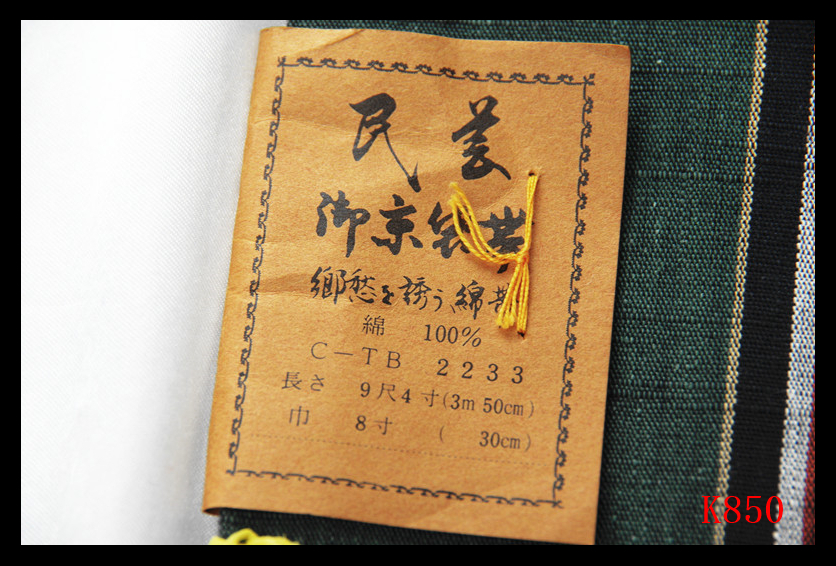 民芸
御京袋帯
郷愁を誘う、綿帯
綿 100%
C-TB 2233
長さ 9尺4寸(3m 50cm)
巾 8寸 ( 30cm)
K850